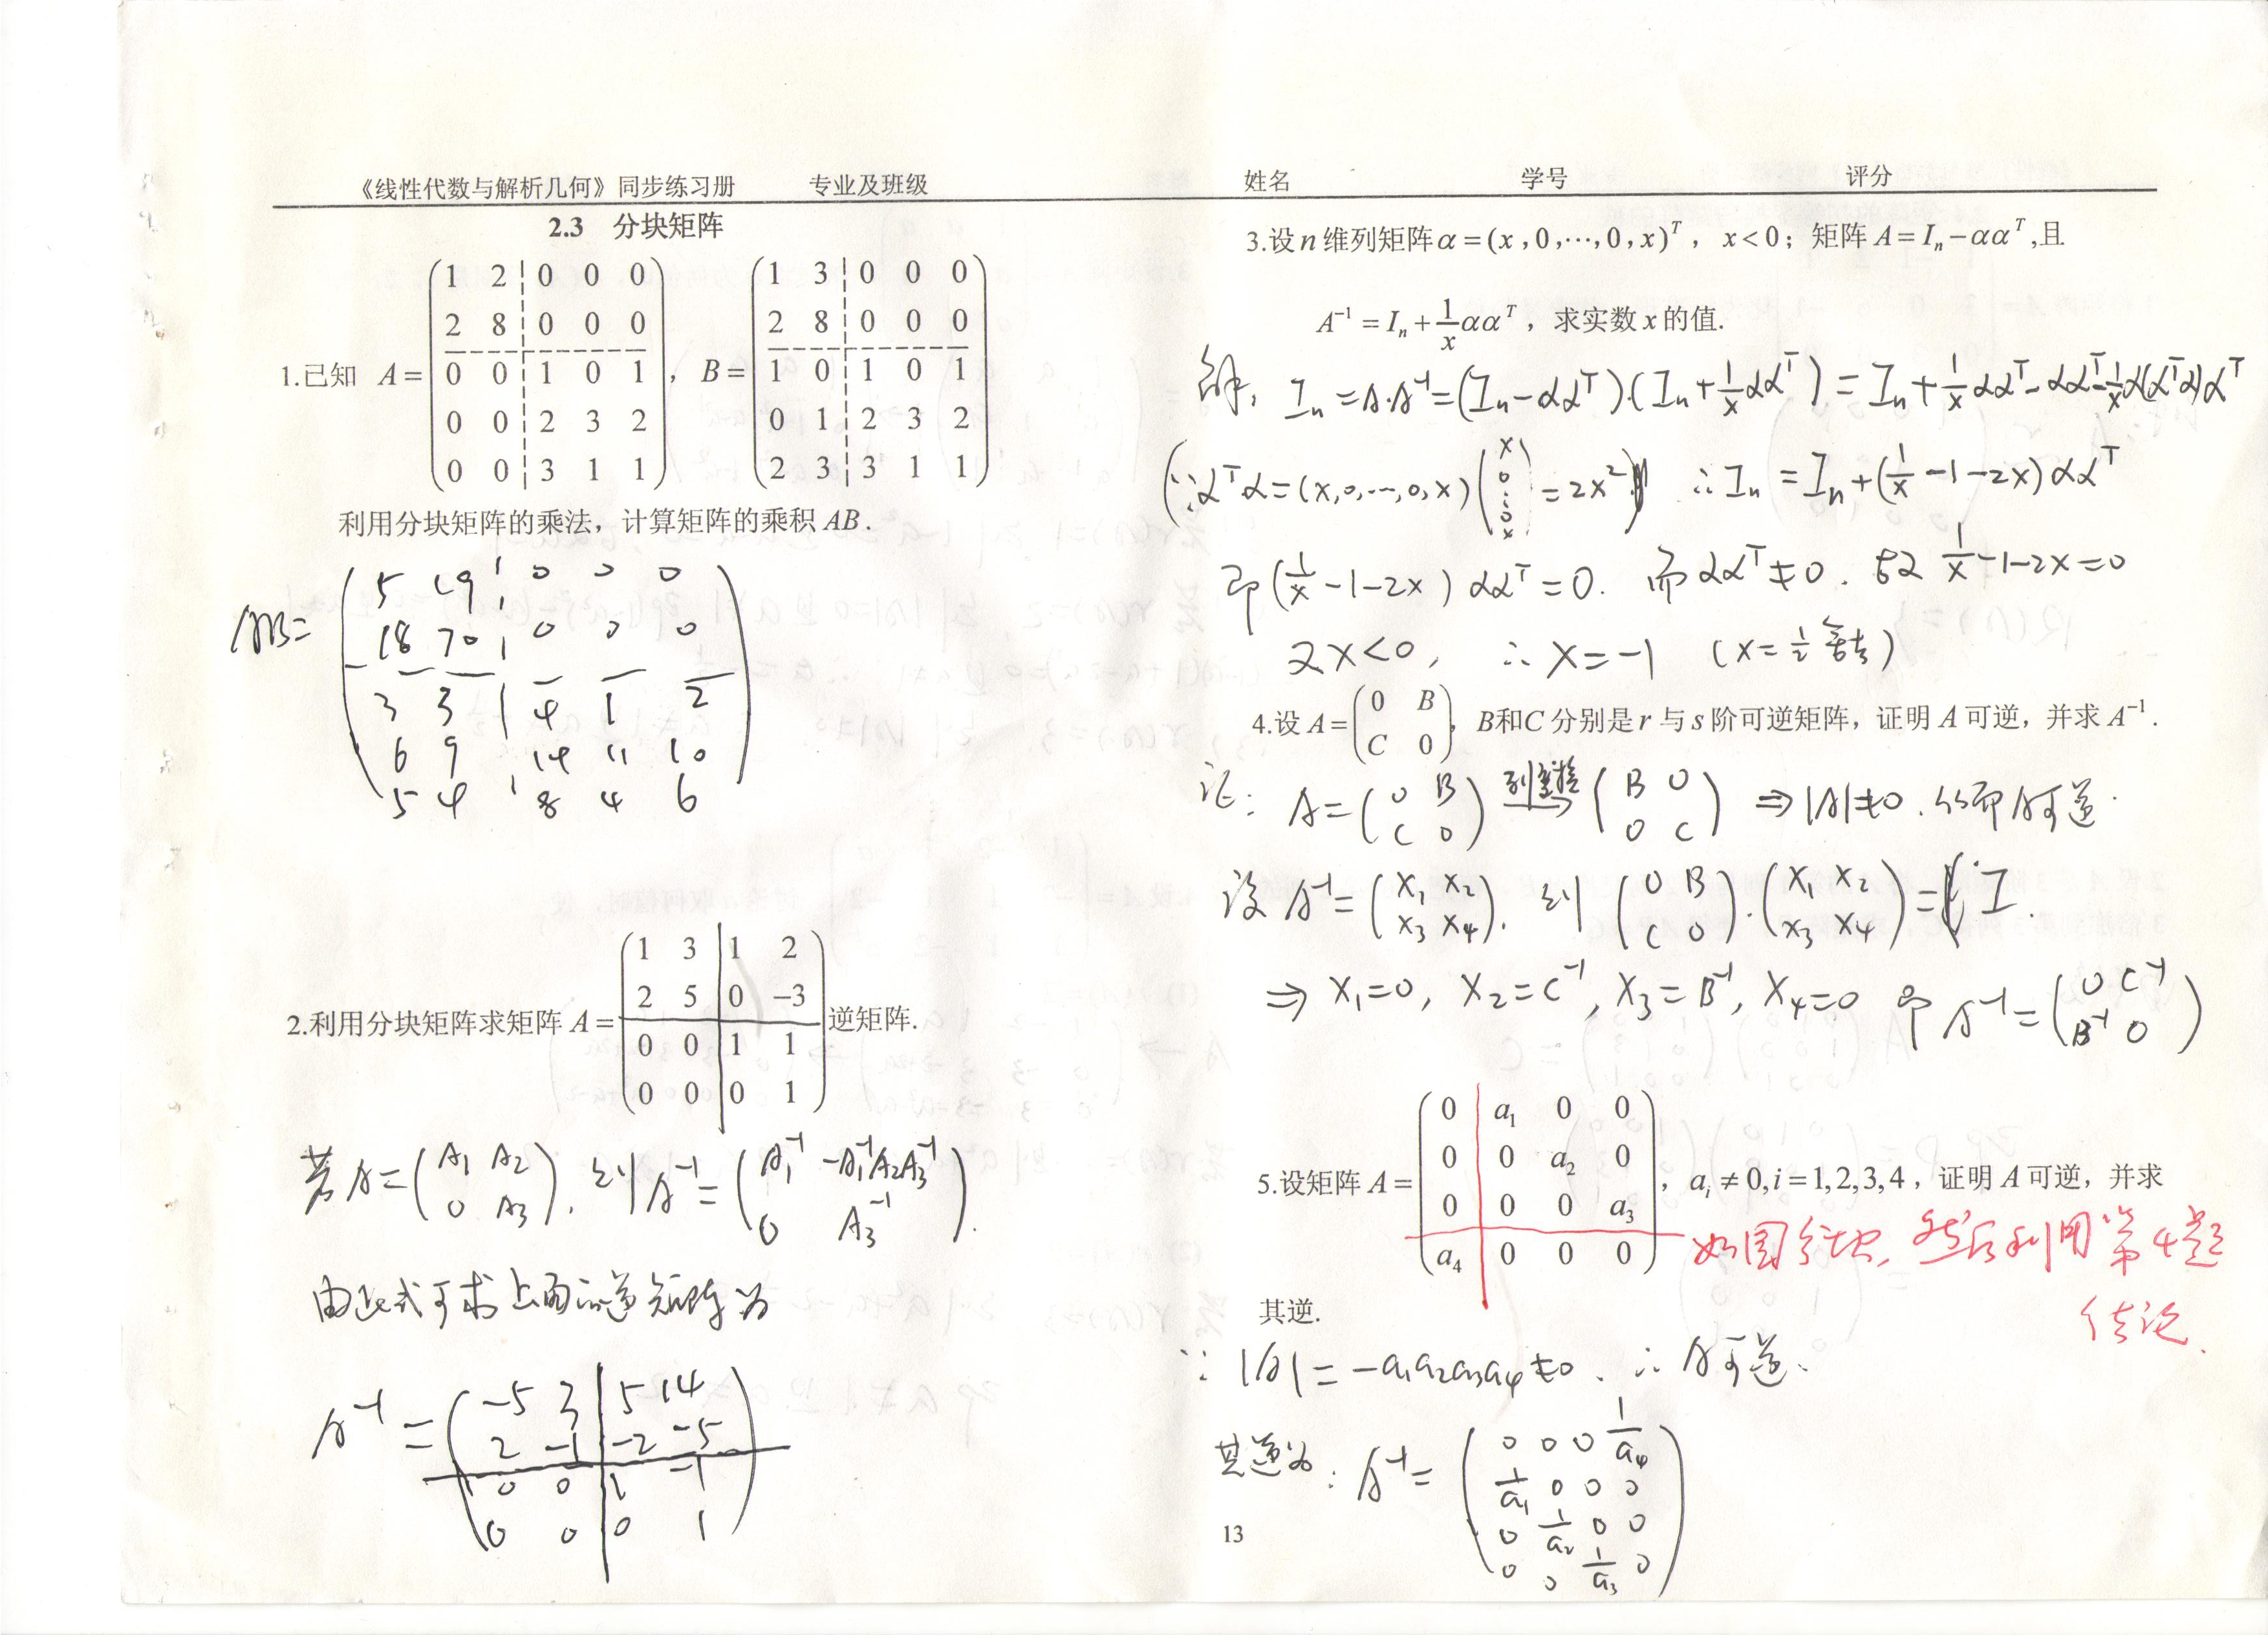 《线性代数与解析几何》同步练习册 专业及班级 姓名 学号 评分
2.3 分块矩阵
1 2 0 0 0
2 8 0 0 0
1.已知 A= 0 0 1 0 1 ,
0 0 2 3 2
0 0 3 1 1
1 3 0 0 0
2 8 0 0 0
B= 1 0 1 0 1
0 1 2 3 2
2 3 3 1 1
利用分块矩阵的乘法，计算矩阵的乘积 AB.
5 19 0 0 0
AB= 18 70 0 0 0
3 3 4 1 2
6 9 14 11 10
5 4 8 4 6
1 3 1 2
2 5 0 −3
2.利用分块矩阵求矩阵 A= 逆矩阵.
0 0 1 1
0 0 0 1
若 A=(A₁ A₂
0 A₃), 则 A⁻¹=(A₁⁻¹ −A₁⁻¹A₂A₃⁻¹
0 A₃⁻¹).
由此式可求上面的逆矩阵为
A⁻¹= -5 3 5 14
2 -1 -2 -5
0 0 1 -1
0 0 0 1
3.设 n 维列矩阵 α=(x,0,⋯,0,x)ᵀ，x<0；矩阵 A=Iₙ−ααᵀ,且
A⁻¹=Iₙ+1/x ααᵀ，求实数 x 的值.
解, Iₙ=A·A⁻¹=(Iₙ−ααᵀ)·(Iₙ+1/x ααᵀ)=Iₙ+1/x ααᵀ−ααᵀ−1/x α(αᵀα)αᵀ
(∵αᵀα=(x,0,…,0,x)(x 0 ⋮ 0 x)=2x²) ∴Iₙ=Iₙ+(1/x−1−2x)ααᵀ
即(1/x−1−2x)ααᵀ=0. 而ααᵀ≠0. 故 1/x−1−2x=0
又x<0, ∴x=−1 (x=1/2舍去)
4.设 A=(0 B
C 0)，B和C 分别是 r 与 s 阶可逆矩阵，证明 A 可逆，并求 A⁻¹.
证: A=(0 B
C 0) → (B 0
0 C) ⇒|A|≠0. 从而A可逆.
设 A⁻¹=(X₁ X₂
X₃ X₄). 则 (0 B
C 0)·(X₁ X₂
X₃ X₄)=I.
⇒ X₁=0, X₂=C⁻¹, X₃=B⁻¹, X₄=0 即 A⁻¹=(0 C⁻¹
B⁻¹ 0)
0 a₁ 0 0
0 0 a₂ 0
5.设矩阵 A= ，aᵢ≠0,i=1,2,3,4，证明 A 可逆，并求
0 0 0 a₃
a₄ 0 0 0
如图分块, 然后利用第4题
结论.
其逆.
∵ |A|=−a₁a₂a₃a₄≠0. ∴ A可逆.
其逆为: A⁻¹= 0 0 0 1/a₄
1/a₁ 0 0 0
0 1/a₂ 0 0
0 0 1/a₃ 0
13